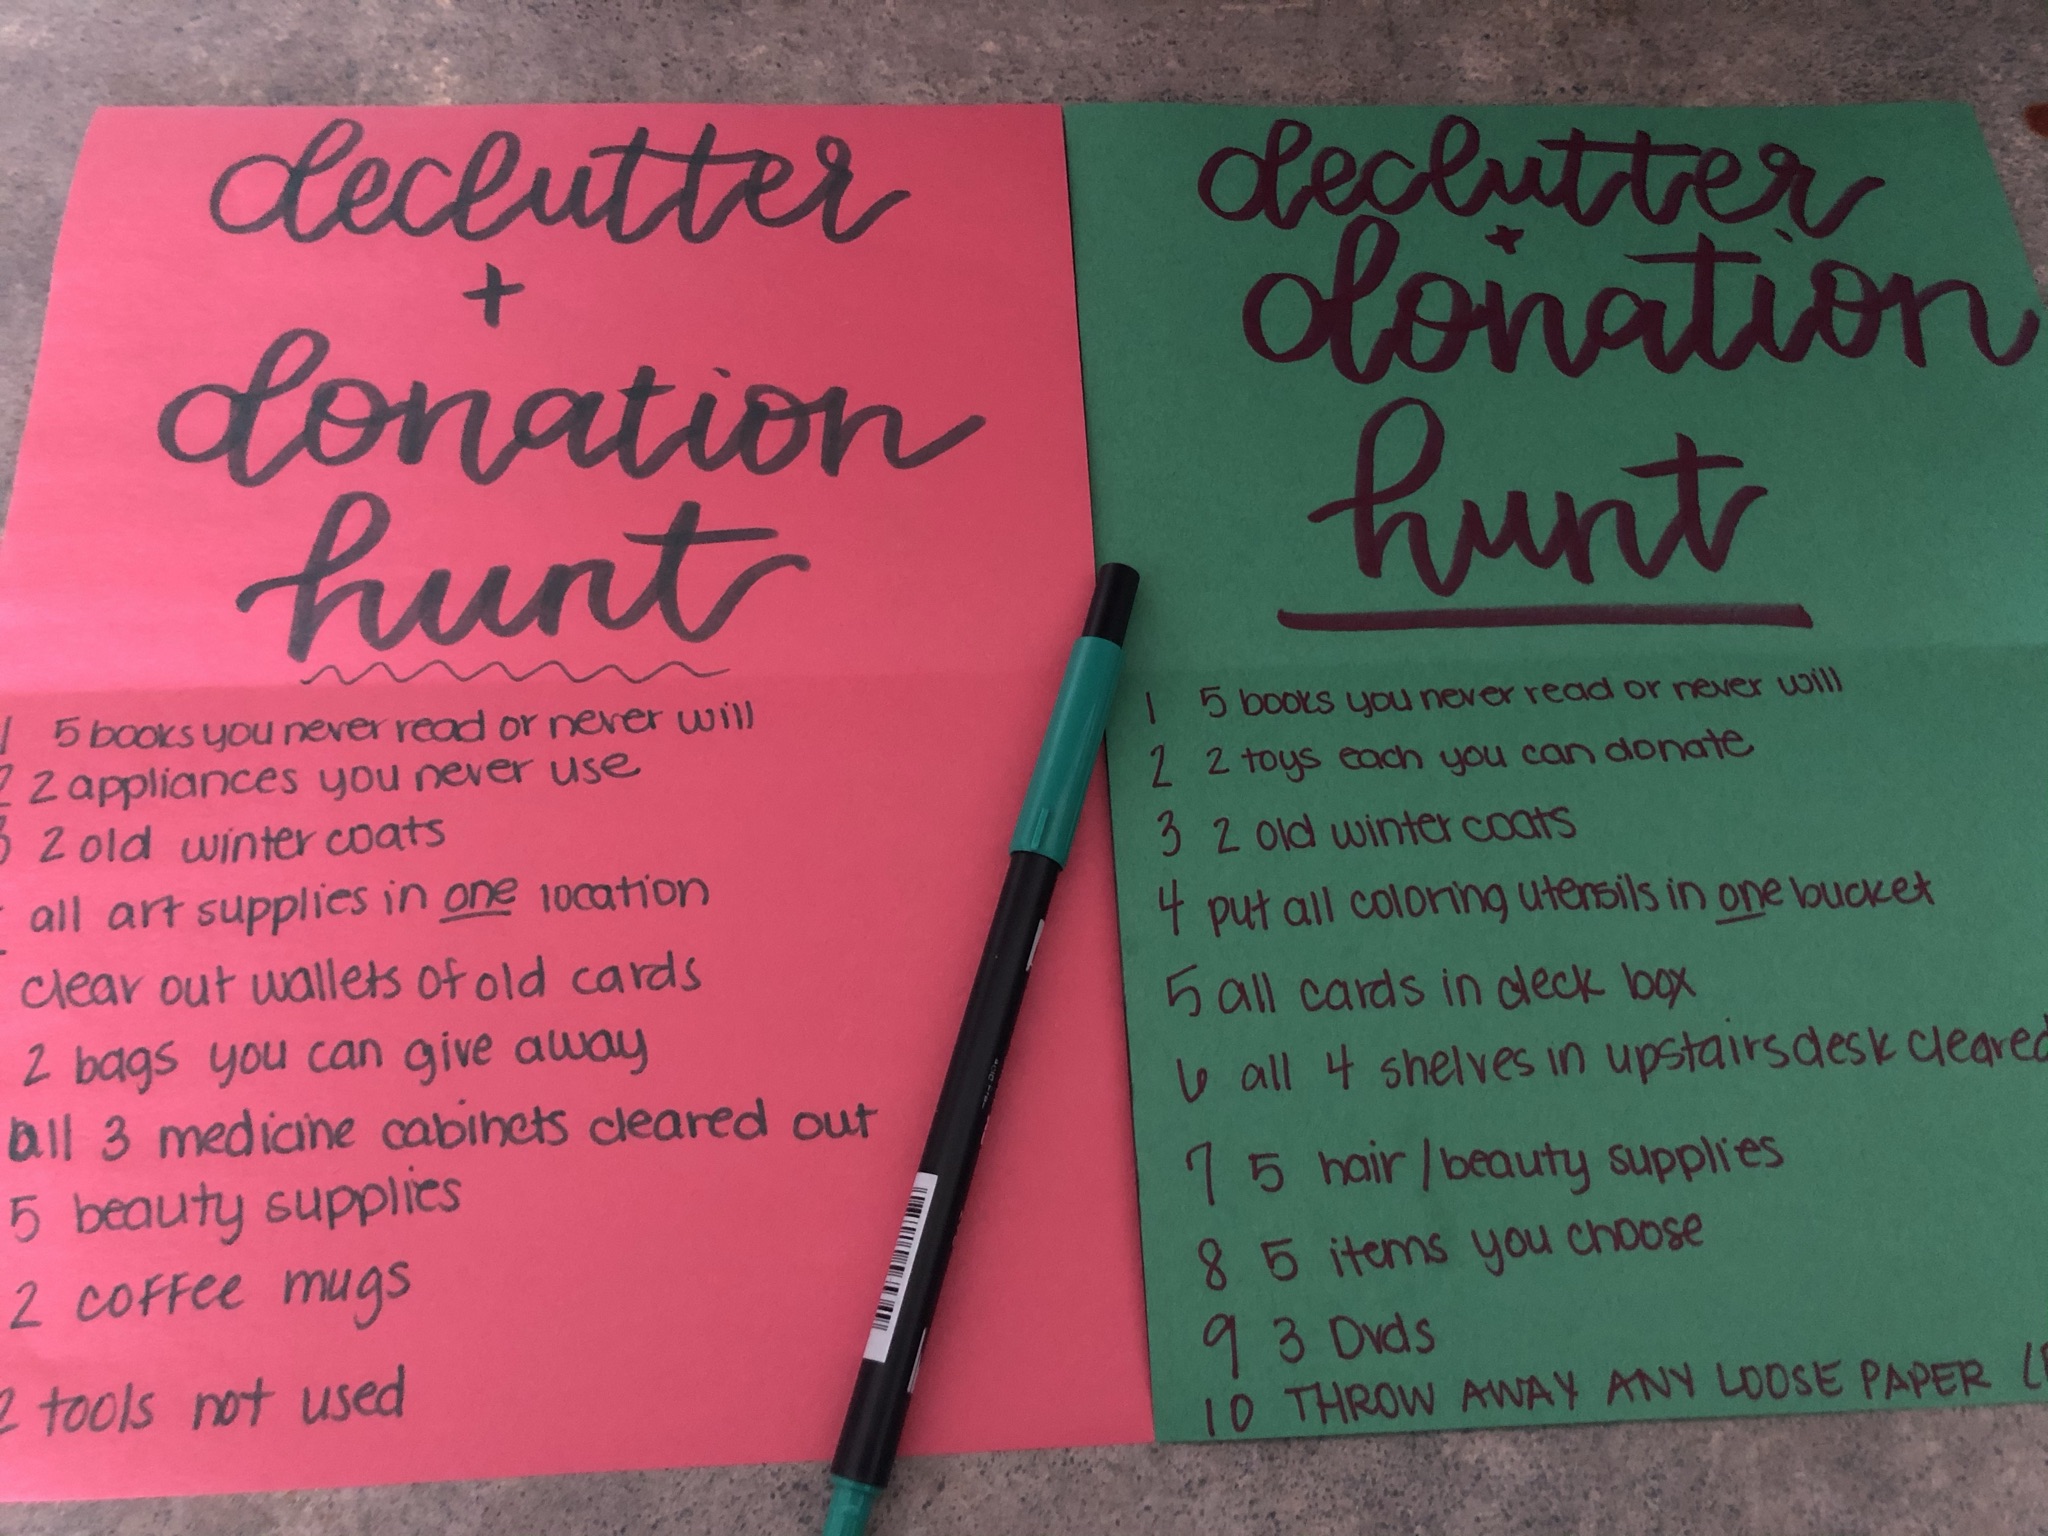 declutter
+
donation
hunt
1 5 books you never read or never will
2 2 appliances you never use
3 2 old winter coats
all art supplies in one location
clear out wallets of old cards
2 bags you can give away
all 3 medicine cabinets cleared out
5 beauty supplies
2 coffee mugs
2 tools not used
declutter
+
donation
hunt
1 5 books you never read or never will
2 2 toys each you can donate
3 2 old winter coats
4 put all coloring utensils in one bucket
5 all cards in deck box
6 all 4 shelves in upstairs desk cleared
7 5 hair/beauty supplies
8 5 items you choose
9 3 Dvds
10 THROW AWAY ANY LOOSE PAPER